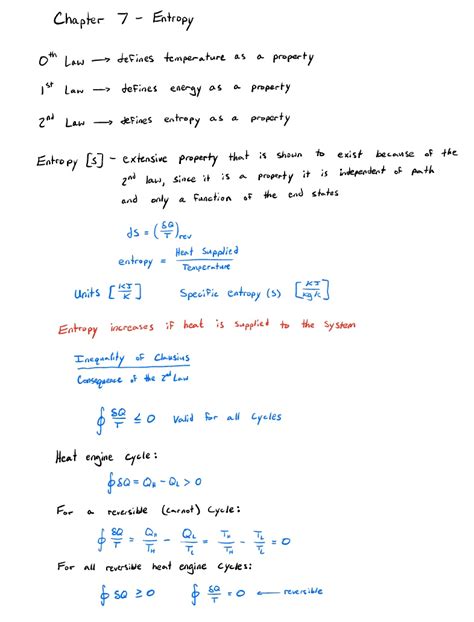 Chapter 7 - Entropy
0th Law → defines temperature as a property
1st Law → defines energy as a property
2nd Law → defines entropy as a property
Entropy [s] - extensive property that is shown to exist because of the
2nd law, since it is a property it is independent of path
and only a function of the end states
ds = (δQ/T)rev
entropy = Heat Supplied/Temperature
Units [KJ/K] Specific entropy (s) [KJ/kgK]
Entropy increases if heat is supplied to the system
Inequality of Clausius
Consequence of the 2nd Law
∮ δQ/T ≤ 0 Valid for all cycles
Heat engine cycle:
∮δQ = QH - QL > 0
For a reversible (carnot) cycle:
∮ δQ/T = QH/TH - QL/TL = TH/TH - TL/TL = 0
For all reversible heat engine cycles:
∮ δQ ≥ 0 ∮ δQ/T = 0 ← reversible